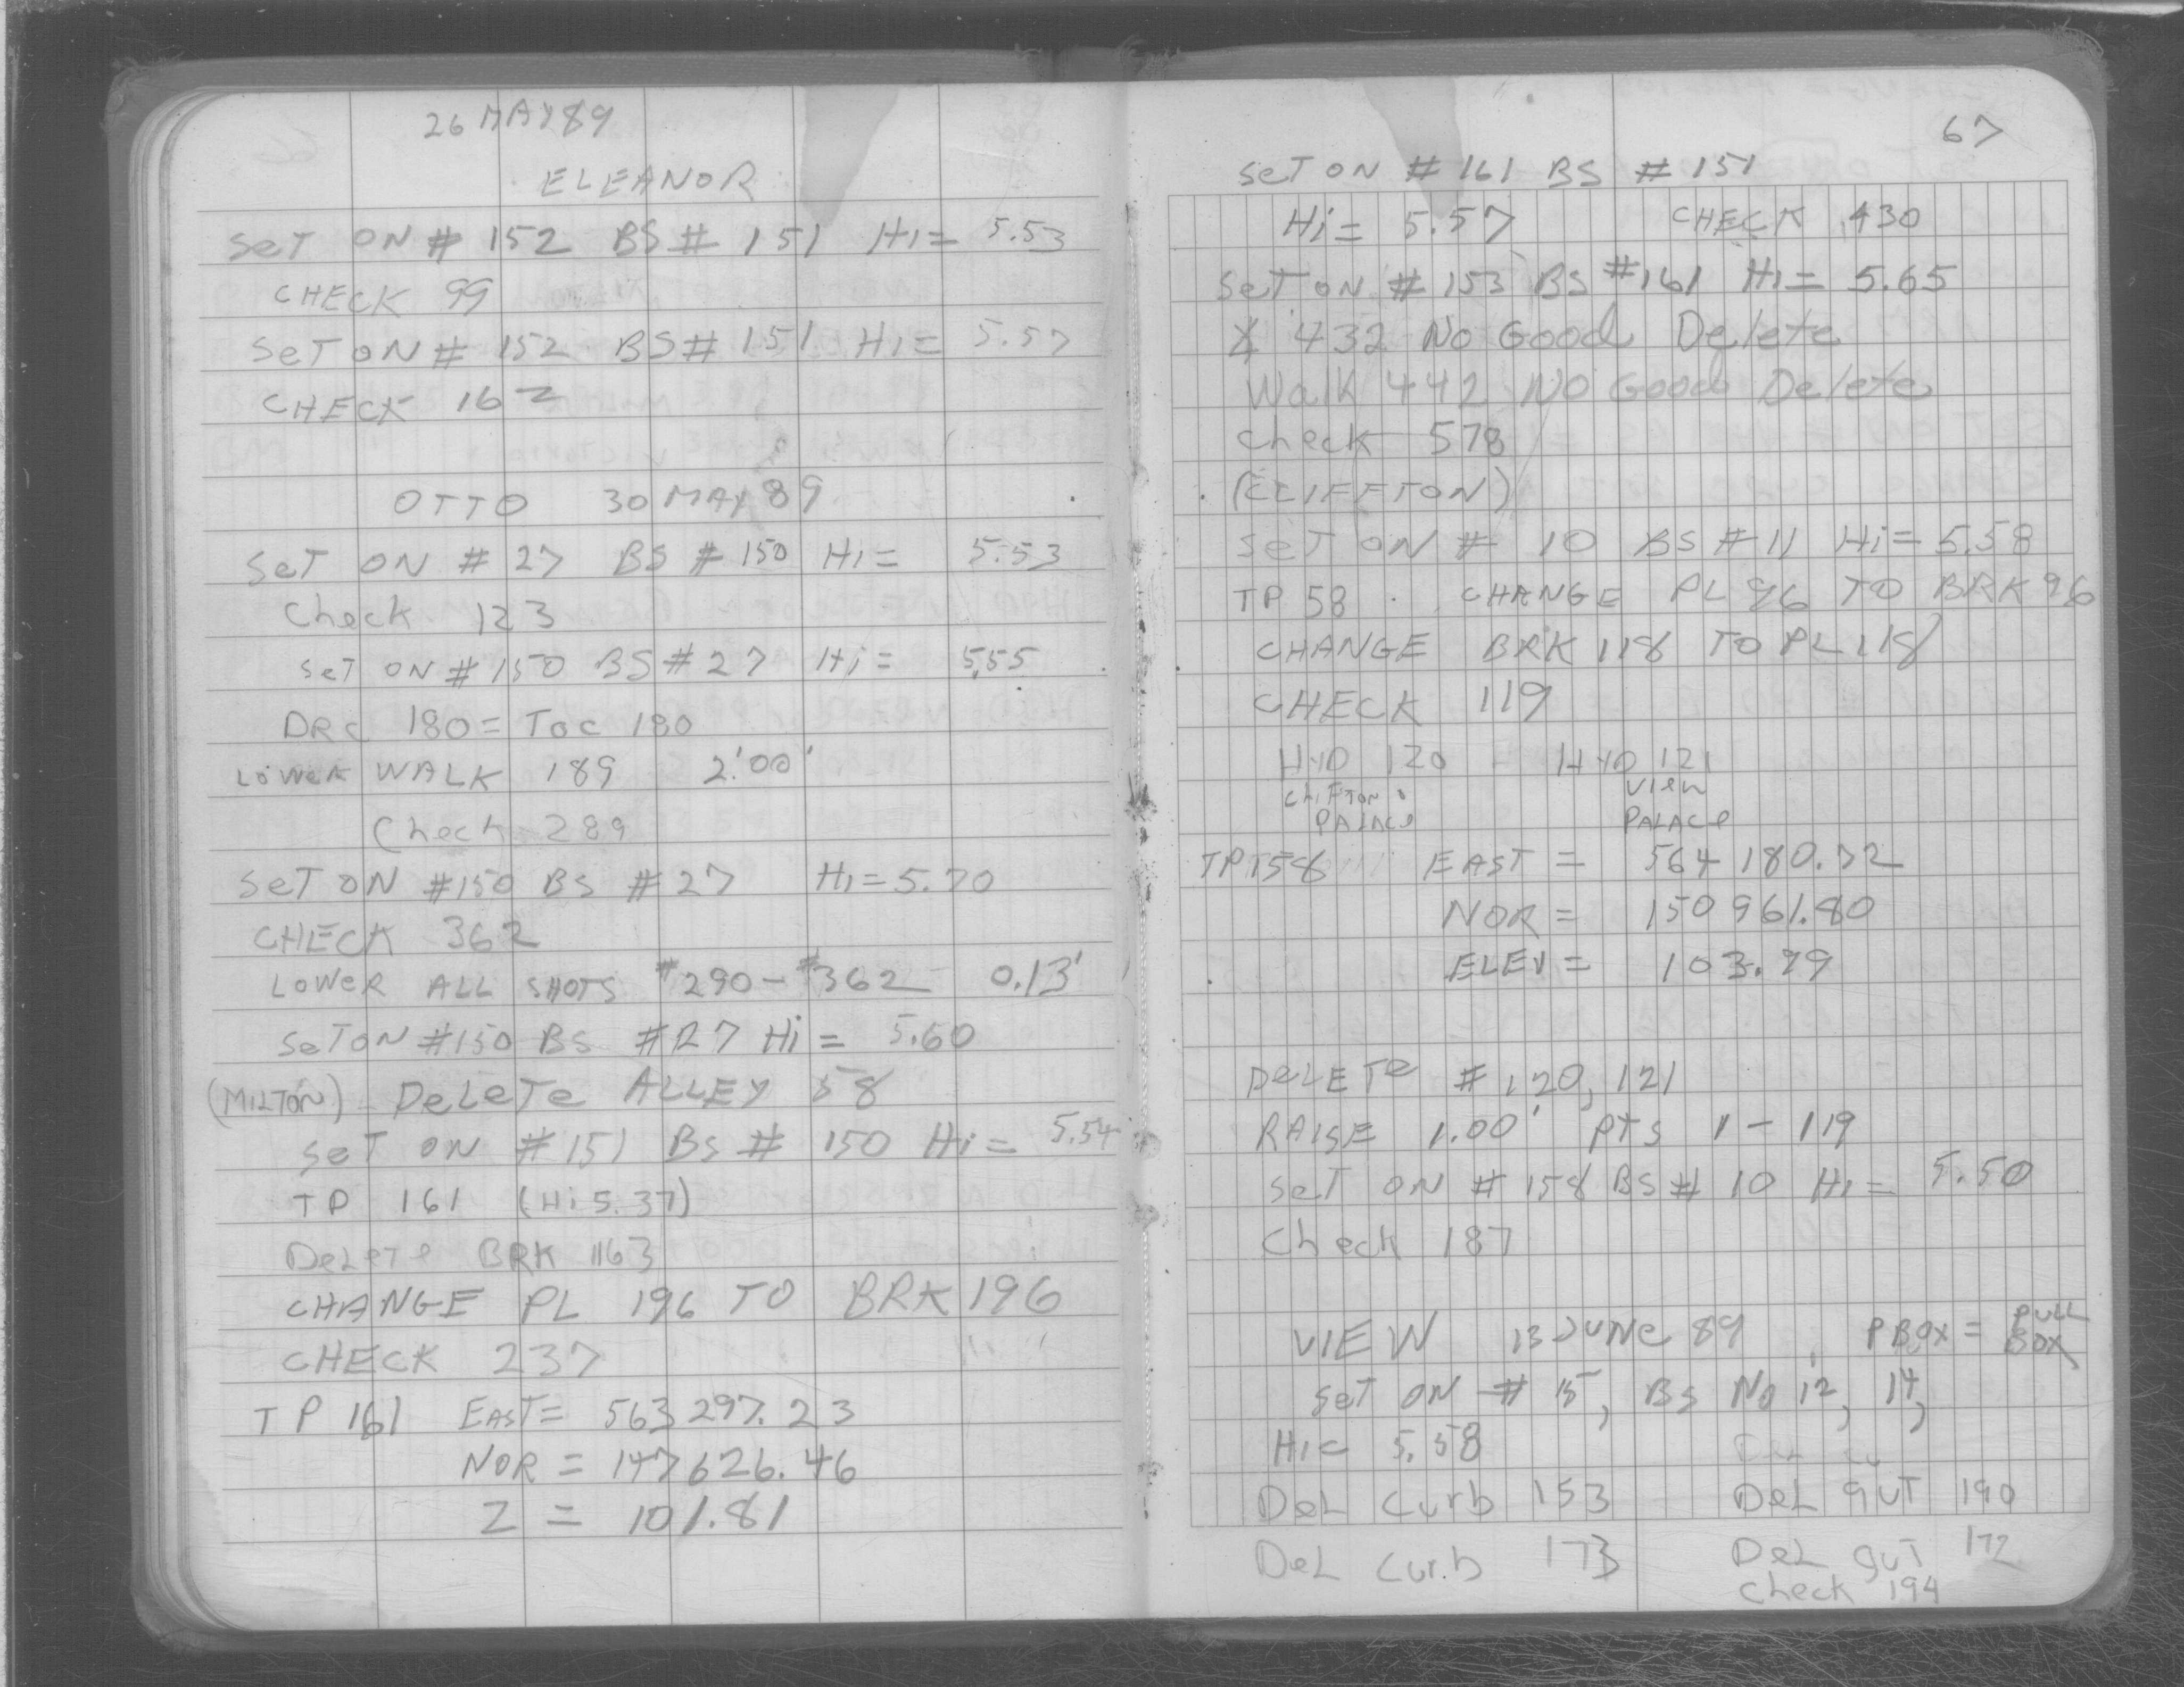 26 MAY 89
ELEANOR
SeT ON # 152 BS # 151 Hi = 5.53
CHECK 99
SeT ON # 152 BS # 151 Hi = 5.57
CHECK 162
OTTO 30 MAY 89
SeT ON # 27 BS # 150 Hi = 5.53
Check 123
SeT ON # 150 BS # 27 Hi = 5.55
DRC 180 = Toc 180
LoWeR WALK 189 2.'00'
Check 289
SeT ON #150 BS #27 Hi = 5.70
CHECK 362
LOWeR ALL SHOTS #290 - #362 0.13'
SeT ON #150 BS #27 Hi = 5.60
(MILTON) - DeLeTe ALLEY 58
SeT ON #151 BS # 150 Hi = 5.54
TP 161 (Hi 5.37)
DeLeTe BRK 163
CHANGE PL 196 TO BRK 196
CHECK 237
TP 161 EAST = 563 297.23
NOR = 147626.46
Z = 101.81
67
SeT ON # 161 BS # 151
Hi = 5.57 CHECK 430
SeT ON # 153 BS #161 Hi = 5.65
432 No Good Delete
Walk 442 No Good Delete
check 578
(CLIFFTON)
SeT ON # 10 BS # 11 Hi = 5.58
TP 58 . CHANGE PL 96 TO BRK 96
CHANGE BRK 118 TO PL 118
CHECK 119
HYD 120 - HYD 121
CLIFTON & PALACe VIeW PALACe
TP 158 EAST = 564 180.72
NOR = 150 961.80
ELEV = 103.79
DeLETe # 120, 121
RAISE 1.00' PTS 1 - 119
SeT ON # 158 BS # 10 Hi = 5.50
Check 187
VIEW 13 JUNe 89 PBOX = PULL BOX
SeT ON # 15, BS No 12, 14,
Hi = 5.58
DeL Curb 153 DeL guT 190
DeL Curb 173 DeL guT 172
Check 194